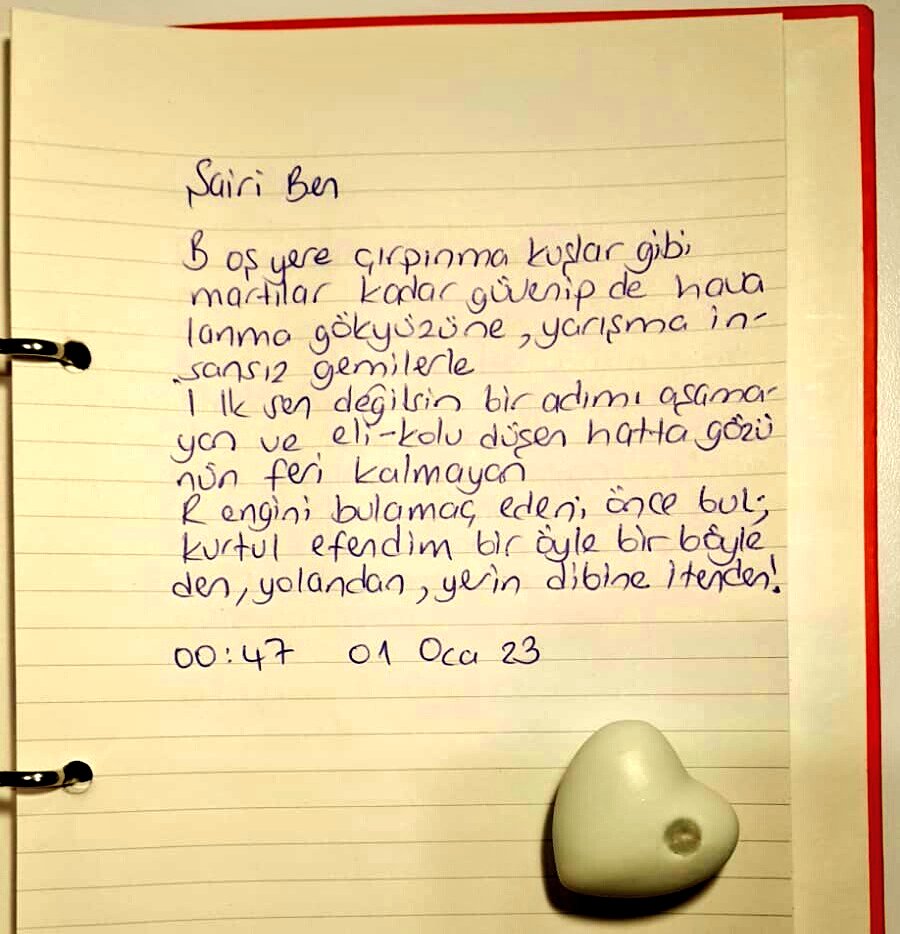 Şairi Ben
B oş yere çırpınma kuşlar gibi
martılar kadar güvenip de hava
lanma gökyüzüne, yarışma in-
sansız gemilerle
İ lk sen değilsin bir adımı aşama-
yan ve eli-kolu düşen hatta gözü
nün feri kalmayan
R engini bulamaç edeni önce bul;
kurtul efendim bir öyle bir böyle
den, yolandan, yerin dibine itenden!
00:47 01 Oca 23